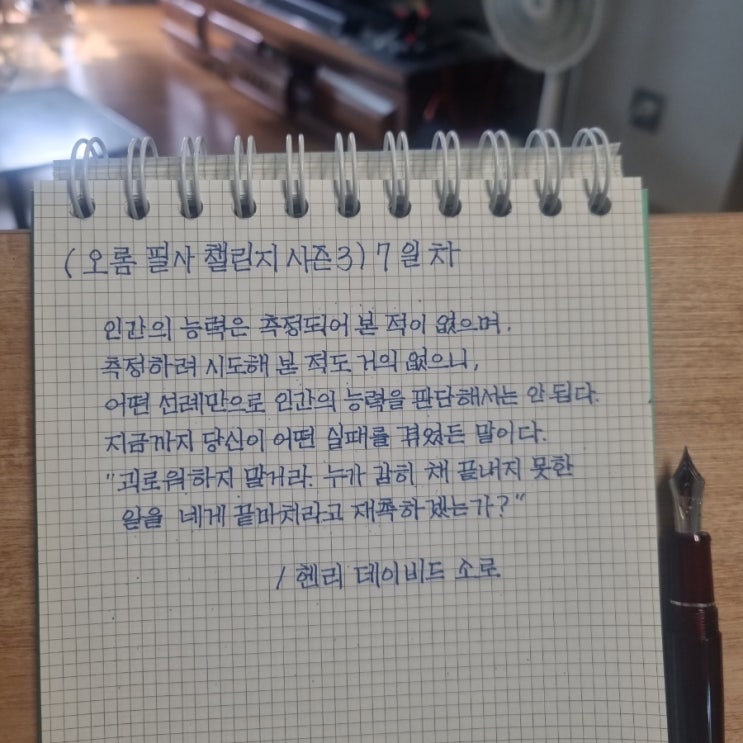 (오롬 필사 챌린지 시즌3) 7일차
인간의 능력은 측정되어 본 적이 없으며.
측정하려 시도해 본 적도 거의 없으니,
어떤 선례만으로 인간의 능력을 판단해서는 안 된다.
지금까지 당신이 어떤 실패를 겪었든 말이다.
"괴로워하지 말거라. 누가 감히 채 끝내지 못한
일을 네게 끝마치라고 재촉하겠는가?"
/ 헨리 데이비드 소로